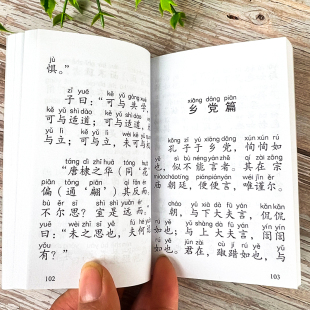 jù
惧。”
zǐ yuē kě yǔ gòng xué
子曰：“可与共学，
kě yǔ shì dào
可与适道；可与适道，
yǔ lì kě yǔ lì wèi kě
与立；可与立，未可
táng dì zhī huá
“唐棣之华（同“花
piān fān qí fǎn ér
偏（通“翩”）其反而。
bù ěr sī shì shì yuǎn ér
不尔思？室是远而。
yuē wèi zhī sī yě fú hé
曰：“未之思也，夫何
yǒu
有？”
102
xiāng dǎng piān
乡党篇
kǒng zǐ yú xiāng dǎng xún xún rú
孔子于乡党，恂恂如
yě sì bù néng yán zhě qí zài zōng
也，似不能言者。其在宗
miào cháo tíng pián pián yán wéi jǐn ěr
庙朝廷，便便言，唯谨尔。
cháo yǔ xià dà fū yán kǎn kǎn
朝，与下大夫言，侃侃
rú yě yǔ shàng dà fū yán yín yín
如也；与上大夫言，訚訚
rú yě jūn zài cù jí rú yě yǔ
如也。君在，踧踖如也，与
103